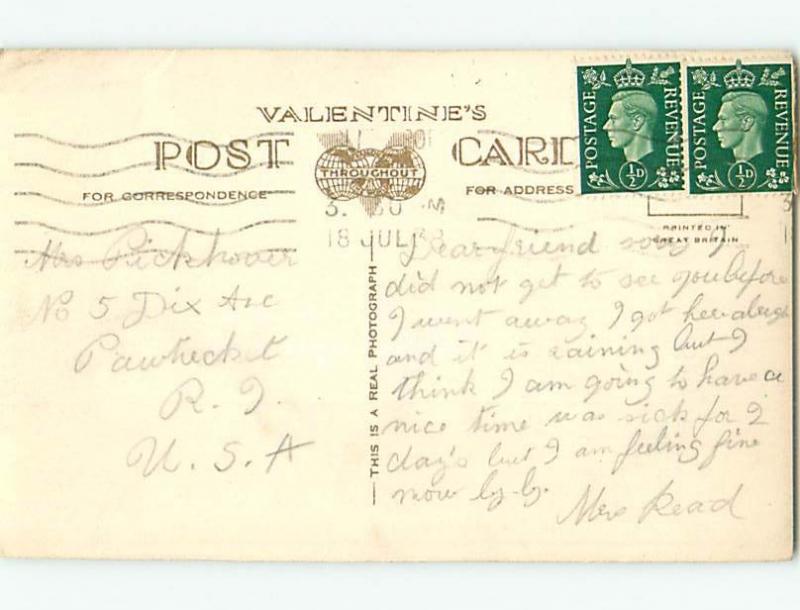 VALENTINE'S
POST CARD
THROUGHOUT
FOR CORRESPONDENCE
FOR ADDRESS
POSTAGE REVENUE
½D
POSTAGE REVENUE
½D
18 JUL
PRINTED IN
GREAT BRITAIN
THIS IS A REAL PHOTOGRAPH
Mrs Pickhover
No 5 Dix Ave
Pawtucket
R. I.
U. S. A
Dear friend sorry I
did not get to see you before
I went away I got here
and it is raining but I
think I am going to have a
nice time was sick for 2
day's but I am feeling fine
now by-by.
Mrs Read